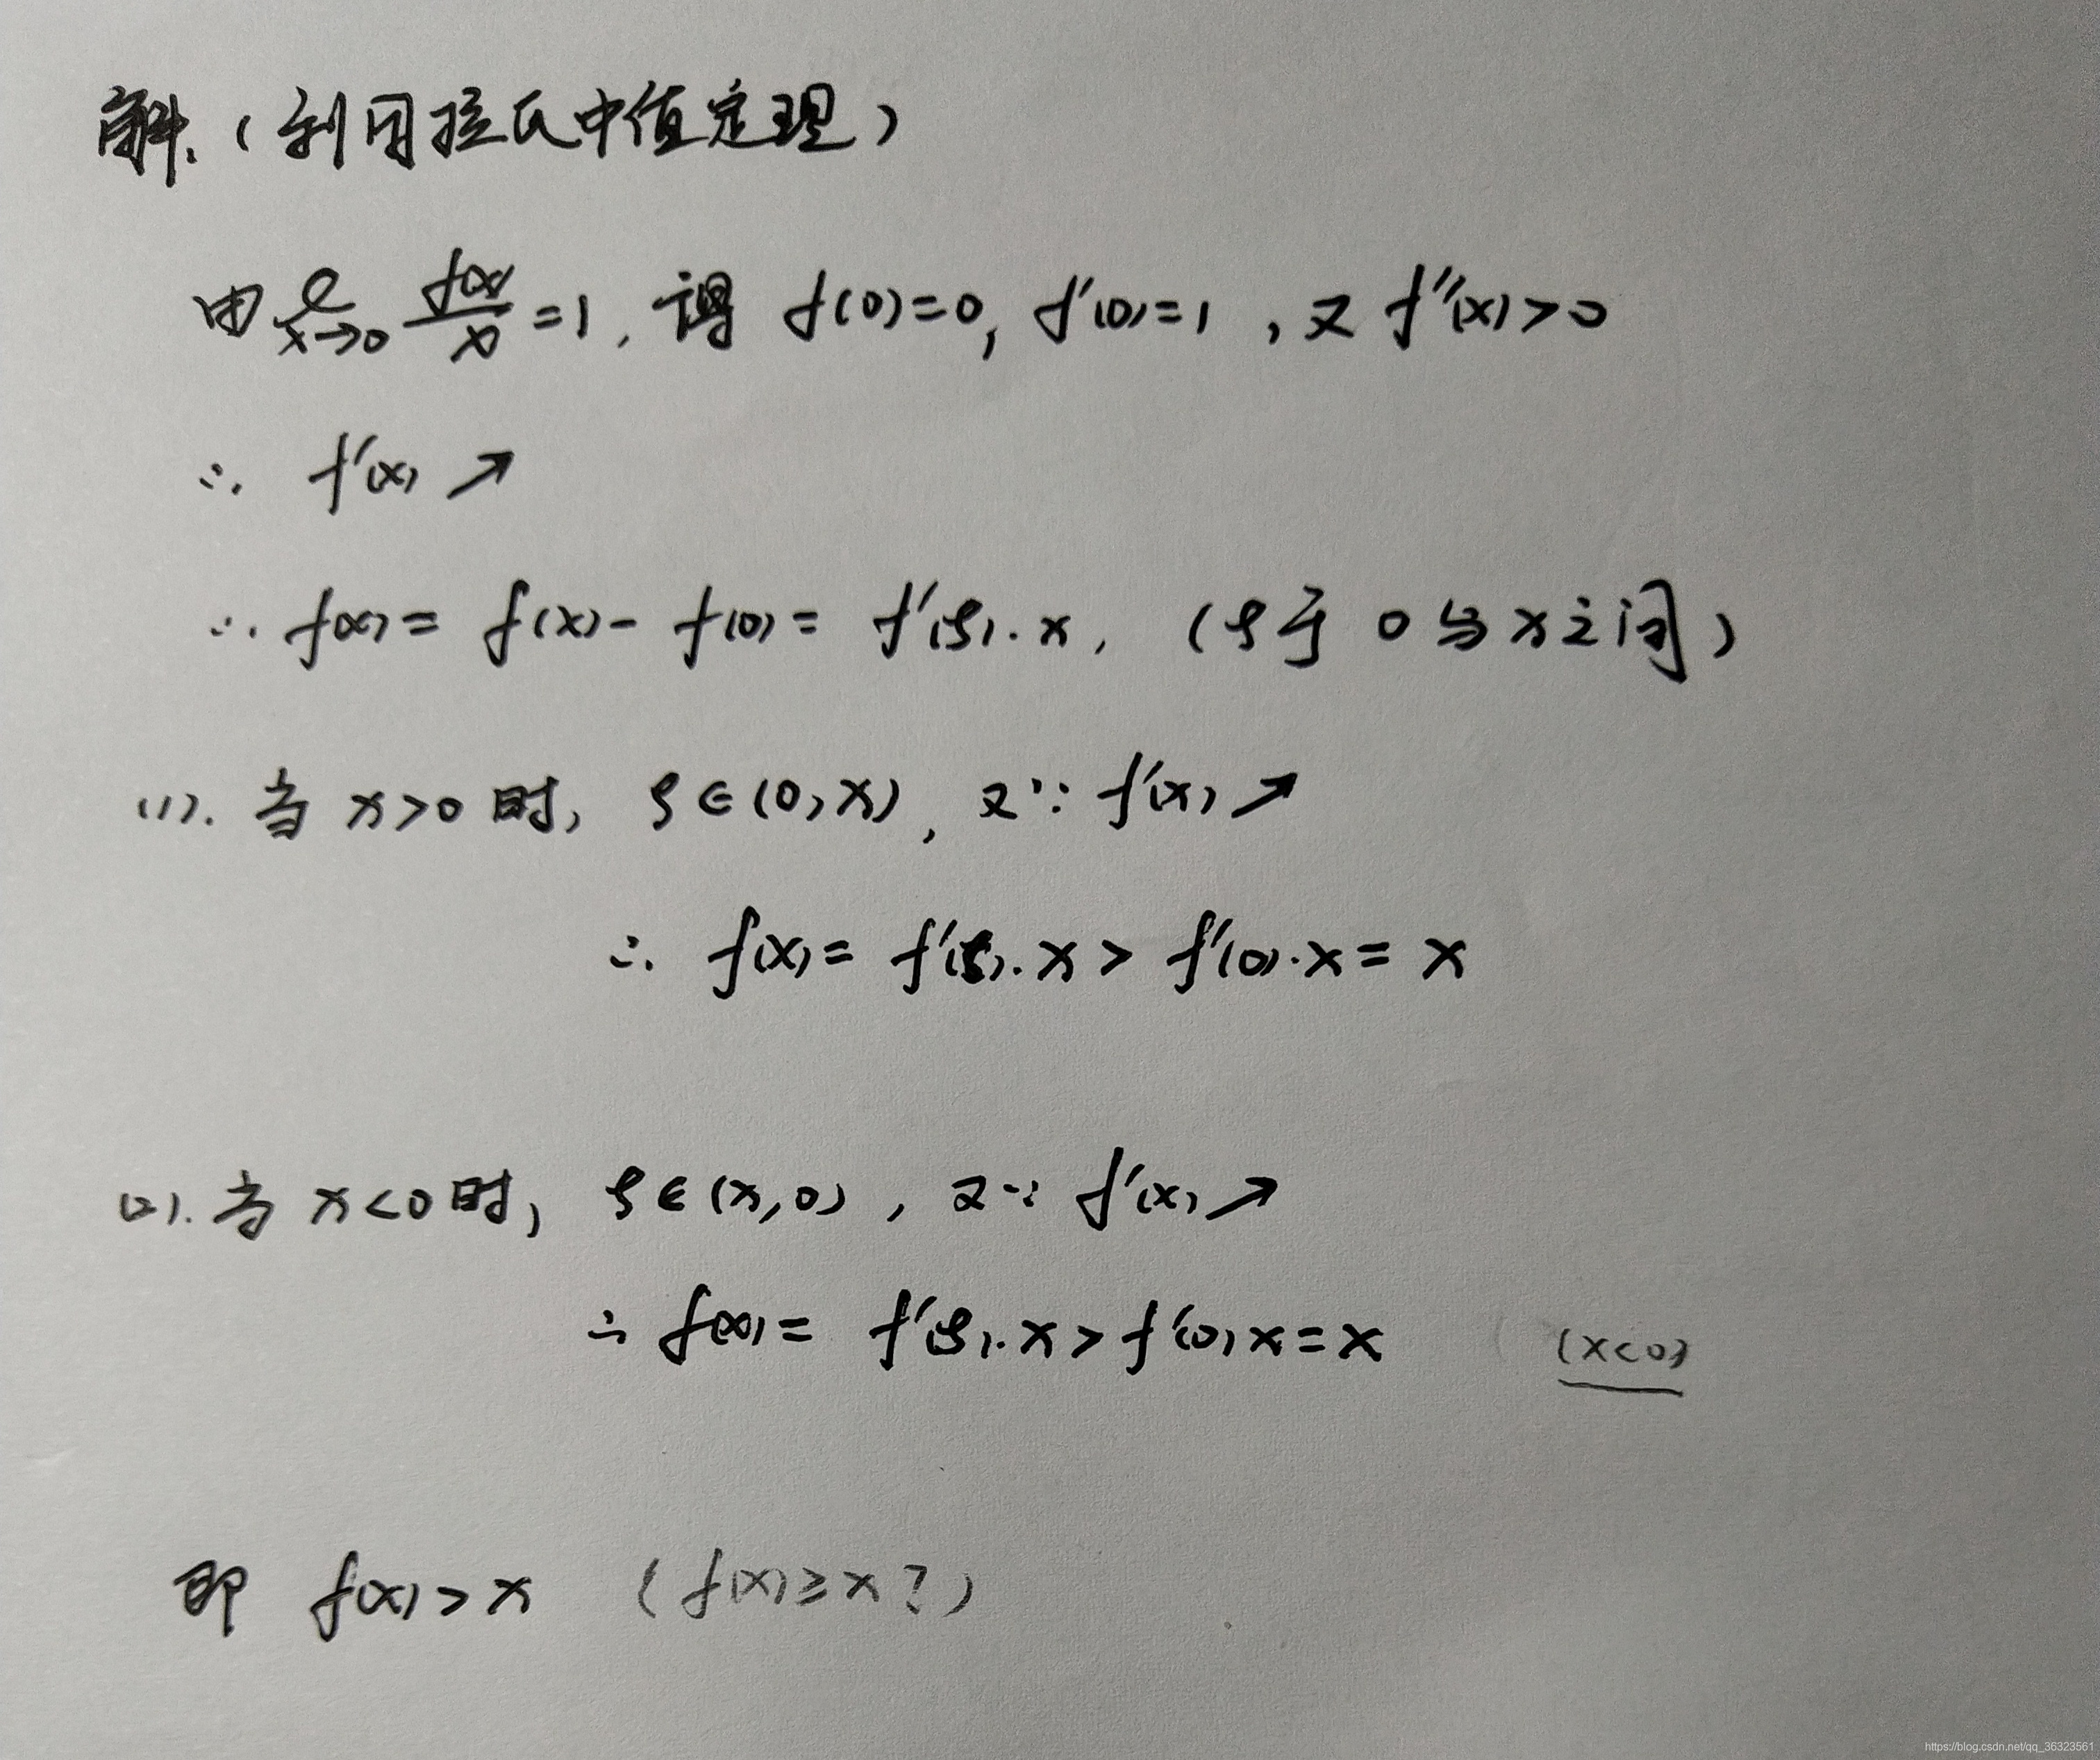 解.(利用拉氏中值定理)
由 lim x→0 f(x)/x =1, 得 f(0)=0, f'(0)=1, 又 f''(x)>0
∴ f'(x)↗
∴ f(x)= f(x)- f(0)= f'(ξ)·x, (ξ于 0与x之间)
(1). 当 x>0 时, ξ∈(0,x), 又∵ f'(x)↗
∴ f(x)= f'(ξ)·x > f'(0)·x = x
(2). 当 x<0时, ξ∈(x,0), 又∵ f'(x)↗
∴ f(x)= f'(ξ)·x > f'(0)x=x (x<0)
即 f(x)>x (f(x)≥x?)
https://blog.csdn.net/qq_36323561